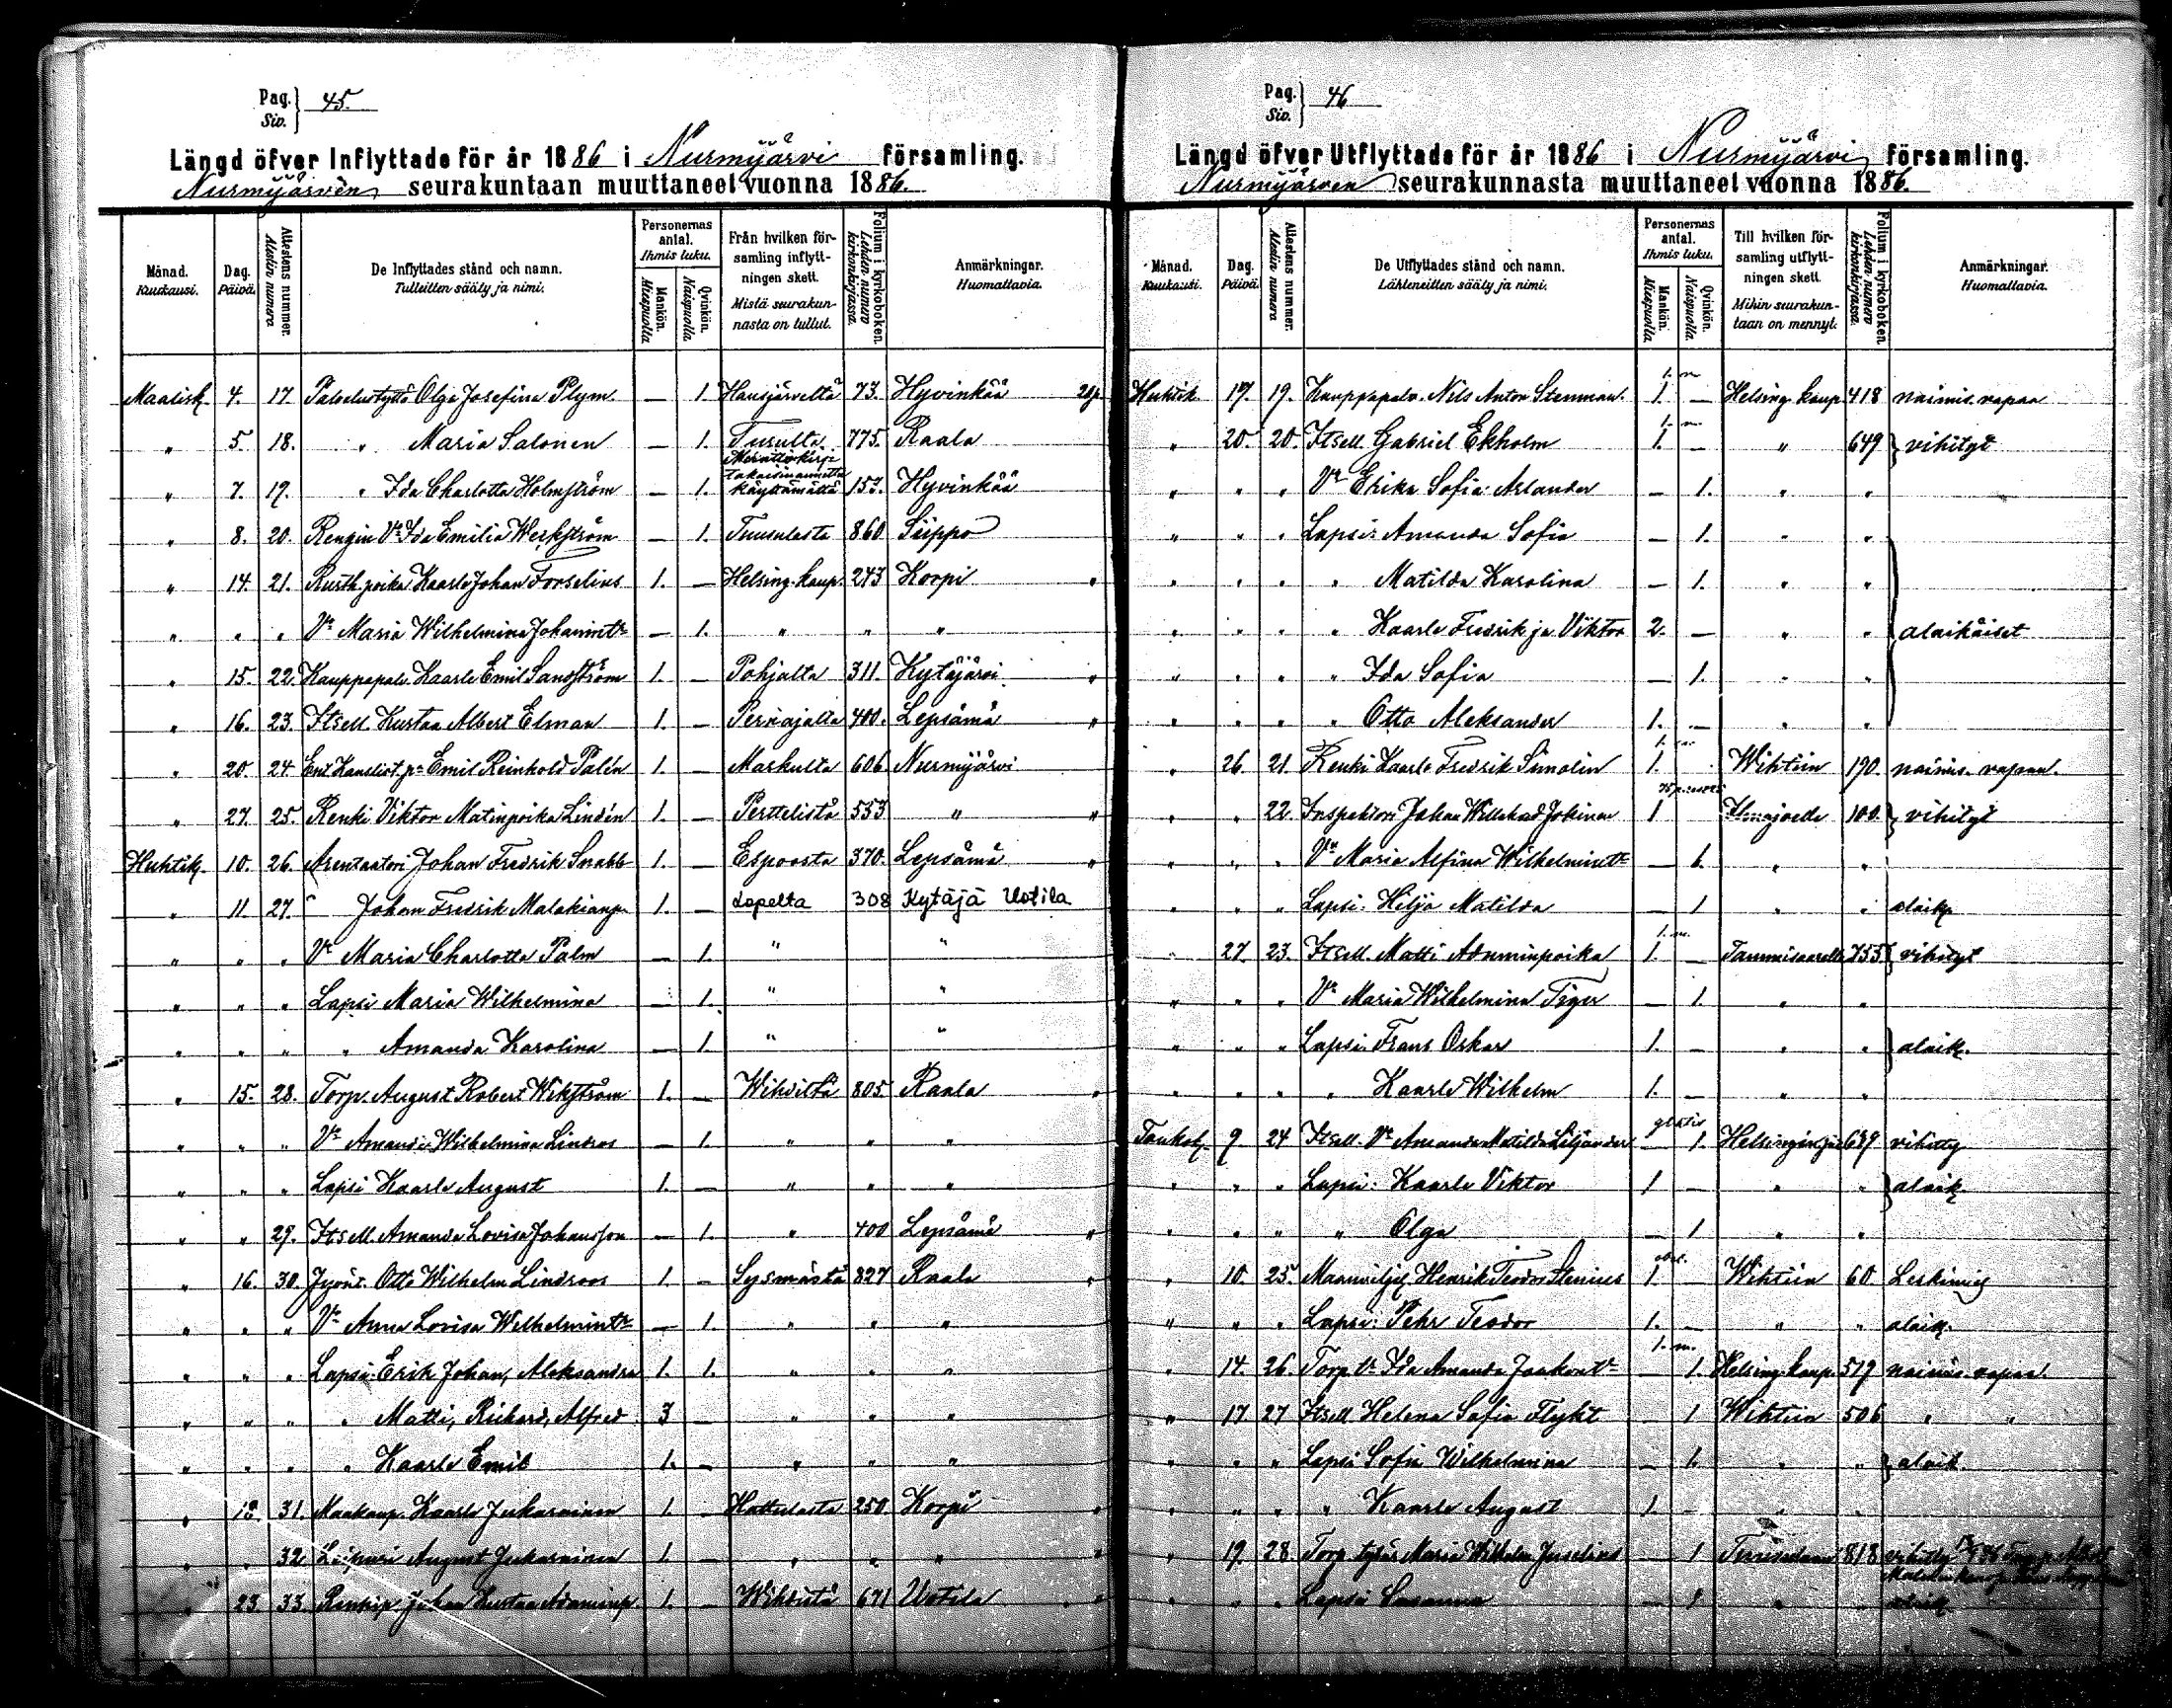 Pag. Siv. } 45.
Längd öfver Inflyttade för år 1886 i Nurmijärvi församling.
Nurmijärven seurakuntaan muuttaneet vuonna 1886.
Månad. Kuukausi. Dag. Päivä. Attestens nummer. Alestin numero De Inflyttades stånd och namn. Tulleitten sääty ja nimi. Personernas antal. Ihmis luku. Mankön. Miespuolia Qvinkön. Naispuolia Från hvilken församling inflyttningen skett. Mistä seurakunnasta on tullut. Folium i kyrkoboken. Lehden numero kirkonkirjassa. Anmärkningar. Huomattavia.
Maalisk. 4. 17 Palvelustyttö Olga Josefina Plym — 1. Hausjärveltä 73. Hyvinkää
" 5. 18. " Maria Salonen — 1. Tusulta 775. Raala
" 7. 19. " Ida Charlotta Holmström — 1. Muuttokirja takaisinannettu käyttämättä 157. Hyvinkää
" 8. 20. Rengin Vo Ida Emilia Weckström — 1. Tuusulasta 860 Siippo
" 14. 21. Rusth. poika Kaarle Johan Forselius 1. — Helsing. kaup. 243 Korpi "
" " " Vo Maria Wilhelmina Johanintr — 1. " " "
" 15. 22. Kauppapalv. Kaarle Emil Sandström 1. — Pohjalta 311. Kytäjärvi "
" 16. 23. Itsell. Kustaa Albert Elman 1. — Perniajalta 400. Lepsämä "
" 20. 24 Ent. Kanslist. pa Emil Reinhold Palén 1. — Maskulta 606 Nurmijärvi
" 27. 25. Renki Viktor Matinpoika Lindén 1. — Perttelistä 553 " "
Huhtik. 10. 26. Arentaatori Johan Fredrik Snabb 1. — Espoosta 370. Lepsämä "
" 11 27. " Johan Fredrik Malakianp. 1. — Lopelta 308 Kytäjä Uotila
" " " Vo Maria Charlotta Palm — 1. " "
" " " Lapsi Maria Wilhelmina — 1. " "
" " " " Amanda Karolina — 1. " "
" 15. 28. Torp. August Robert Wikström 1. — Wihdiltä 805. Raala "
" " " Vo Amanda Wilhelmina Lindros — 1. " " "
" " " Lapsi Kaarle August 1. — " " "
" " 29. Itsell. Amanda Lovisa Johansson — 1. " 400 Lepsämä "
" 16. 30. Jyvät. Otto Wilhelm Lindroos 1. — Sysmästä 827 Raala "
" " " Vo Anna Lovisa Wilhelmintr — 1. " " "
" " " Lapsi: Erik Johan, Aleksandra 1. 1. " " "
" " " " Matti, Richard, Alfred 3 — " " "
" " " " Kaarle Emil 1. — " " "
" 18. 31. Maakaup. Kaarle Jukarainen 1. — Hattulasta 250. Korpi "
" " 32. Leipuri August Jukarainen 1. — " " " "
" 23. 33. Renkip. Johan Kustaa Adaminp. 1. — Wihdistä 671 Uotila "
Pag. Siv. } 46
Längd öfver Utflyttade för år 1886 i Nurmijärvi församling.
Nurmijärven seurakunnasta muuttaneet vuonna 1886.
Månad. Kuukausi. Dag. Päivä. Attestens nummer. Alestin numero De Utflyttades stånd och namn. Lähteneitten sääty ja nimi. Personernas antal. Ihmis luku. Mankön. Miespuolia Qvinkön. Naispuolia Till hvilken församling utflyttningen skett. Mihin seurakuntaan on mennyt. Folium i kyrkoboken Lehden numero kirkonkirjassa. Anmärkningar. Huomattavia.
Huhtik 17. 19. Kauppapalv. Nils Anton Stenman. 1. — Helsing. kaup. 418 naimis. vapaa
" 20. 20. Itsell. Gabriel Ekholm 1. — " 649 } vihityt
" " " Vo Erika Sofia Arlander — 1. " "
" " " Lapsi: Amanda Sofia — 1. " "
" " " " Matilda Karolina — 1. " "
" " " " Kaarle Fredrik ja Viktor 2. — " " alaikäiset
" " " " Ida Sofia — 1. " "
" " " " Otto Aleksander 1. — " "
" 26. 21. Renki Kaarle Fredrik Simolin 1. Wihtiin 190. naimis. vapaa.
" " 22. Inspehtori Johan Willehad Jokinen 1 Ilmajoelle 100. } vihityt
" " " Vo Maria Alfina Wilhelmintr — 1. " "
" " " Lapsi: Hilja Matilda — 1 " " alaik.
" 27. 23. Itsell. Matti Adaminpoika 1. — Tammisaarelle 755 } vihityt
" " " Vo Maria Wilhelmina Tiger — 1. " "
" " " Lapsi: Frans Oskar 1. — " " } alaik.
" " " " Kaarle Wilhelm 1. — " "
Toukok. 9 24 Itsell. Vo Amanda Matilda Liljander gratis — 1. Helsingin pit. 699 vihitty
" " " Lapsi: Kaarle Viktor 1 — " " } alaik.
" " " " Olga — 1 " "
" 10. 25. Maanvilj. Henrik Teodor Stenius 1. Wihtiin 60. Leskimies
" " " Lapsi: Pehr Teodor 1. — " " alaik.
" 14. 26. Torp. tr Ida Amanda Jaakontr 1. Helsing. kaup. 519 naimis. vapaa.
" 17 27 Itsell. Helena Sofia Flykt — 1 Wihtiin 506 " "
" " " Lapsi Sofia Wilhelmina — 1. " " } alaik.
" " " " Kaarle August 1. — " "
" 19. 28 Torp. tytär Maria Wilhelm. Josselius — 1 818 vihitty
" " " Lapsi Susanna — 1 " " alaik.